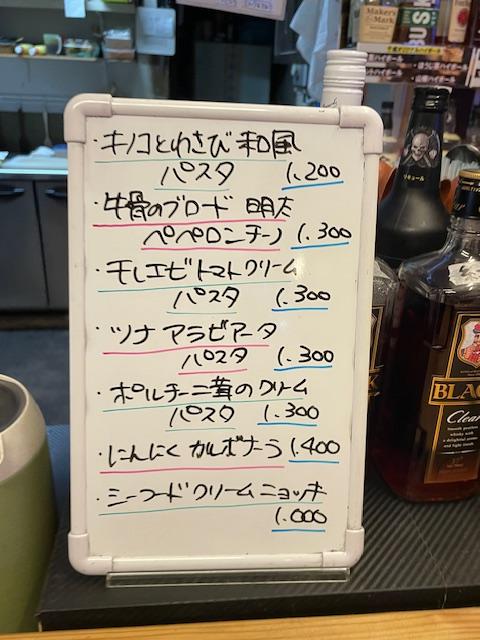 Maker's
Mark
・キノコとわさび 和風
パスタ 1.200
・牛骨のブロード 明太
ペペロンチーノ 1.300
・干しエビトマトクリーム
パスタ 1.300
・ツナ アラビアータ
パスタ 1.300
・ポルチーニ茸のクリーム
パスタ 1.300
・にんにく カルボナーラ 1.400
・シーフードクリーム ニョッキ
1.000
リキュール
BLAC
Clear